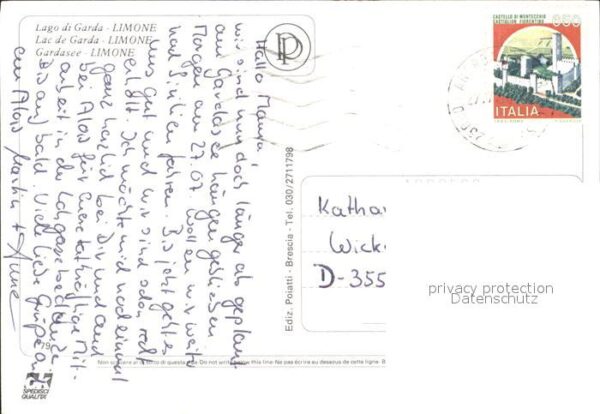 Lago di Garda - LIMONE
Lac de Garda - LIMONE
Gardasee - LIMONE
CASTELLO DI MONTECCHIO
CASTIGLION FIORENTINO
650
ITALIA
Hallo Mama,
wir sind nun doch länger als geplant
am Gardasee hängen geblieben.
Morgen am 27.07. wollen wir weiter
nach Sizilien fahren. Bis jetzt geht es
uns gut und wir sind schon recht
erholt. Ich möchte mich nocheinmal
ganz herzlich bei Dir und auch
bei Alois für Eure tatkräftige Mit-
arbeit in der Lohgasse bedanken.
Bis auf bald. Viele liebe Grüße auch
an Alois Martin + Anne
Ediz. Poiatti - Brescia - Tel. 030/2711798
Katha
Wick
D-355
privacy protection
Datenschutz
79
Non scrivere al di sotto di questa riga. Do not write below this line. Ne pas écrire au dessous de cette ligne.
SPEDISCI
QUALITÀ